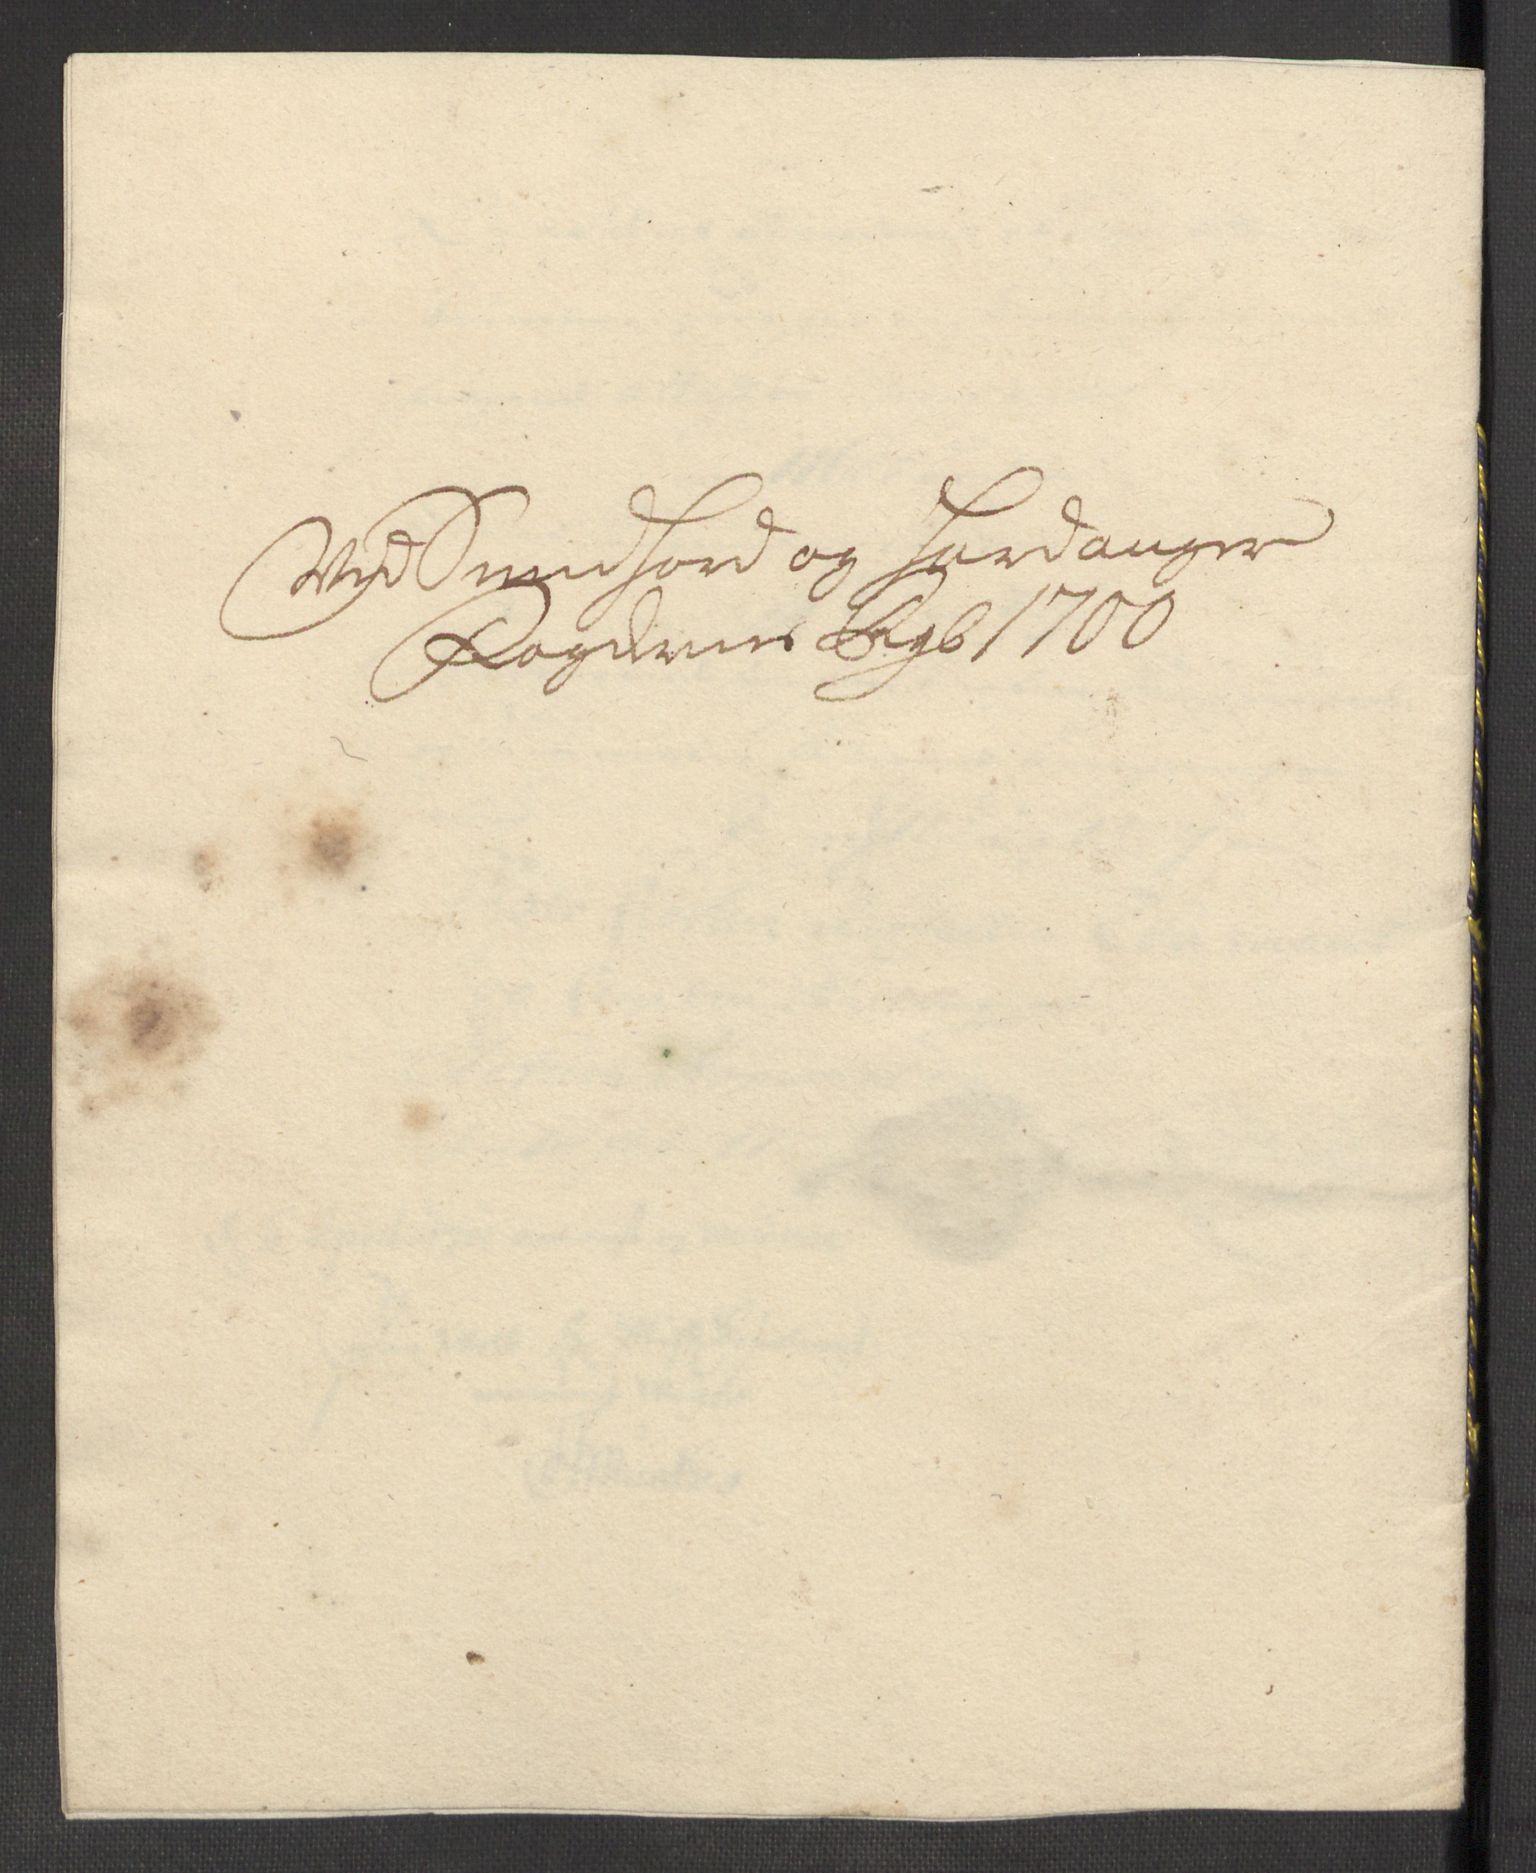 Ved Sundhord og Hardanger
Fogderies Rgb 1700